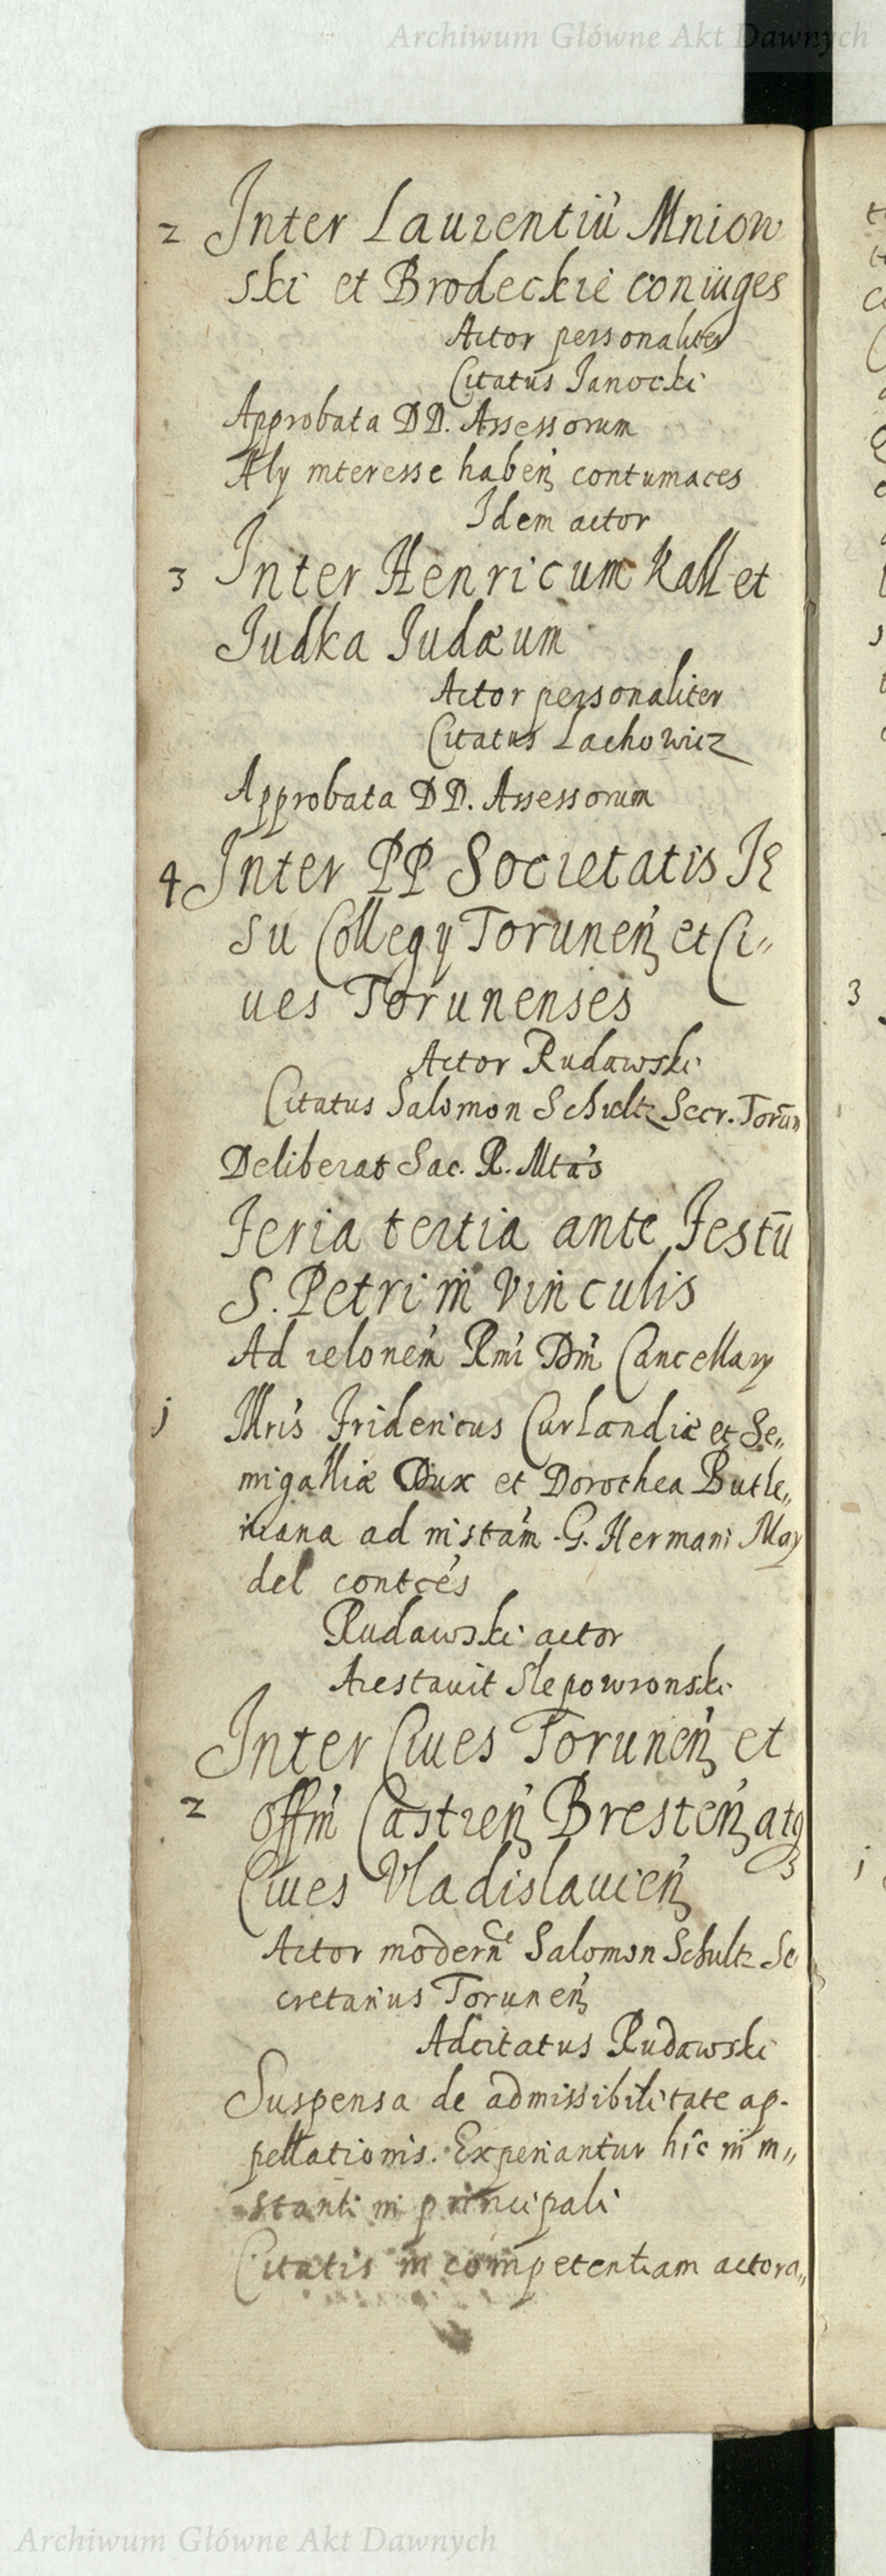 Archiwum Główne Akt Dawnych
2 Inter Laurentiũ Mniow
ski et Brodeckie coniuges
Actor personaliter
Citatus Janocki
Approbata DD. Assessorum
Aly interesse habeñ contumaces
Idem actor
3 Inter Henricum Kall et
Judka Judæum
Actor personaliter
Citatus Lachowicz
Approbata DD. Assessorum
4 Inter PP Societatis JE
su Collegy Toruneñ et Ci„
ues Torunenses
Actor Rudawski
Citatus Salomon Schultz Secr. Torun
Deliberat Sac. R. Mtas
Feria tertia ante Festū
S. Petri in Vinculis
Ad relonem Rmi Dni Cancellary
1 Illris Fridericus Curlandiæ et Se„
migalliæ Dux et Dorothea Butle„
riana ad instam G. Hermani May
del contces
Rudawski actor
Arestauit Slepowronski
Inter Ciues Toruneñ et
2 offm Castreñ Bresteñ atq
Ciues Vladislauieñ
Actor modern9 Salomon Schultz Se
cretarius Toruneñ
Adcitatus Rudawski
Suspensa de admissibilitate ap-
pellationis. Experiantur hic in in„
stanti in principali
Citatis incompetentiam actora„
Archiwum Główne Akt Dawnych